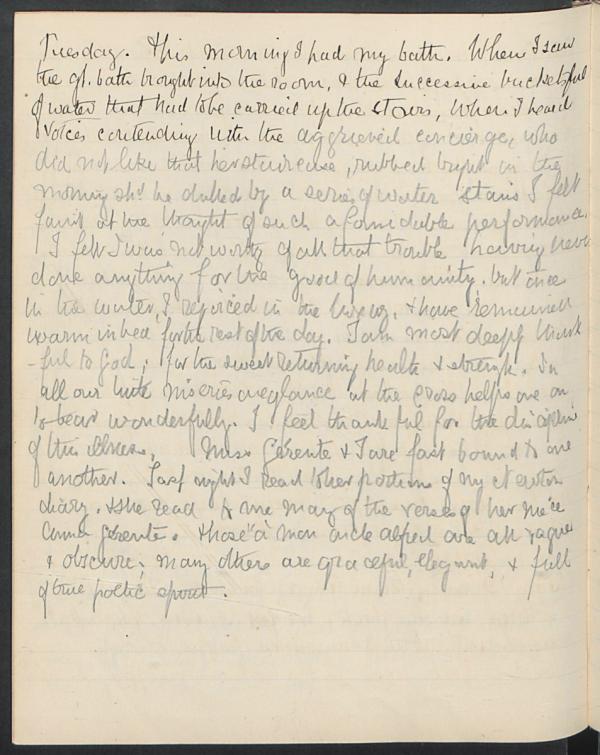 Tuesday. This morning I had my bath. When I saw
the gt. bath brought into the room, & the successive bucketsful
of water that had to be carried up the stairs, When I heard
voices contending with the aggrieved concierge, who
did not like that her staircase, rubbed bright in the
morning shd. be dulled by a series of water stains I felt
faint at the thought of such a formidable performance.
I felt I was not worthy of all that trouble having never
done anything for the good of humanity. but once
in the water, I rejoiced in the & have remained
warm in bed for the rest of the day. I am most deeply thank
-ful to God, for the sweet returning health & strength. In
all our little miseries one glance at the cross helps one on
to bear wonderfully. I feel thankful for the discipline
of this illness. Miss Gérente & I are fast bound to one
another. Last night I read to her portions of my Newton
diary. & she read to me many of the verses of her niece
Anna Gérente. Those "à mon oncle alfred are all vague
& obscure; many others are graceful, elegant, & full
of true poetic spirit.